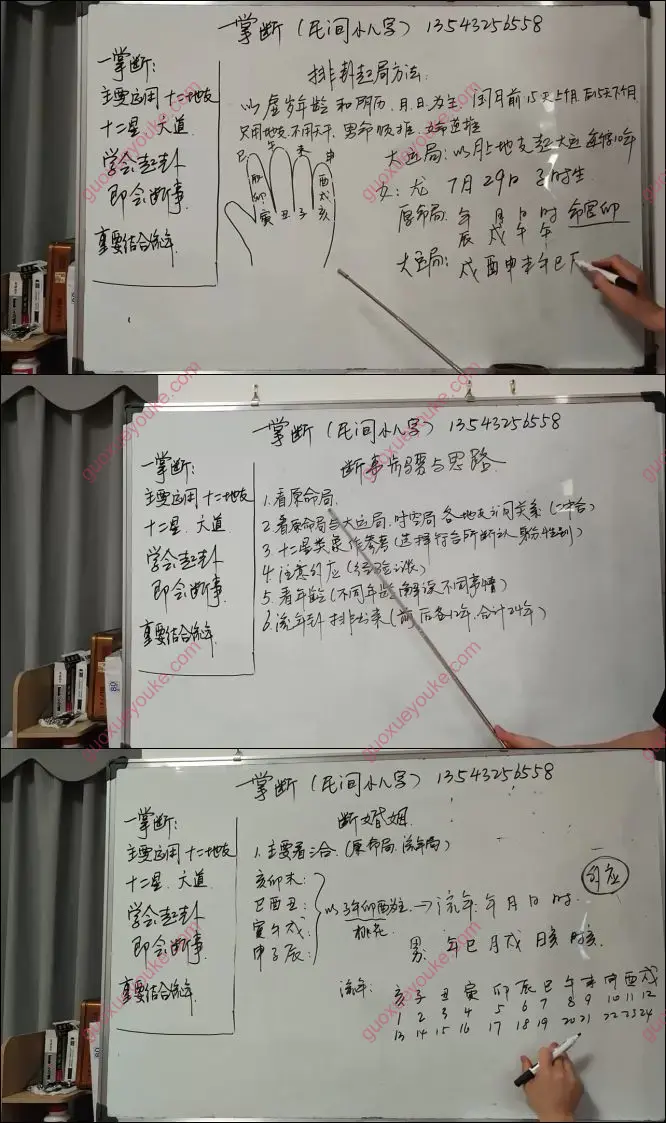 一掌断（民间小八字）13543256558
一掌断：
主要运用十二地支
十二星、六道
学会起卦
即会断事
重要结合流年
排卦起局方法：
以虚岁年龄和阴历、月、日为主，闰月前15天上个月 后15天下个月
只用地支，不用天干，男命顺推，女命逆推
大运局：以月上地支起大运 每字10年
女：龙 7月29日 子时生
原命局：年 月 日 时 命宫卯
辰 戌 午 午
大运局：戌 酉 申 未 午 巳
巳 午 未 申
辰 酉
卯 戌
寅 丑 子 亥
一掌断（民间小八字）13543256558
断事步骤与思路
一掌断：
主要运用十二地支
十二星、六道
学会起卦
即会断事
重要结合流年
1. 看原命局
2. 看原命局与大运局、时空局 各地支之间关系（六冲合）
3. 十二星类象作参考（选择符合所断之人 身份性别）
4. 注意外应（经验之谈）
5. 看年龄（不同年龄，解读不同事情）
6. 流年卦 排出来（前后各12年，合计24年）
一掌断（民间小八字）13543256558
断婚姻
一掌断：
主要运用十二地支
十二星、六道
学会起卦
即会断事
重要结合流年
1. 主要看三合（原命局、流年局）
亥卯未：
巳酉丑：
寅午戌：
申子辰：
以子午卯酉为主 → 流年：年 月 日 时
桃花
外应
男：年巳 月戌 日亥 时亥
流年：亥 子 丑 寅 卯 辰 巳 午 未 申 酉 戌
1 2 3 4 5 6 7 8 9 10 11 12
13 14 15 16 17 18 19 20 21 22 23 24
guoxueyouke.com